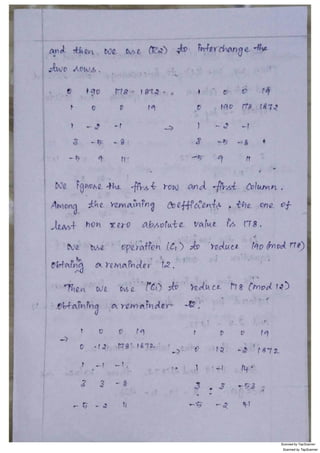 and then we use (R2) to interchange the
two rows.
0 190 178 1872 1 0 0 19
1 0 0 19 0 190 178 1872
1 -2 -1 → 1 -2 -1
3 -5 -8 3 -5 -8
-5 9 11 -5 9 11
We ignore the first row and first column.
Among the remaining coefficients, the one of
least non zero absolute value is 178.
We use operation (C1) to reduce 190 (mod 178)
obtaing a remainder 12.
Then we use (C1) to reduce 178 (mod 12)
obtaining a remainder
→ 1 0 0 19 1 0 0 19
0 12 178 1872 → 0 12 -2 1872
1 -1 -1 1 -1
3 3 -8 3 3 -53
-5 -2 11 -5 -2 41
Scanned by TapScanner
Scanned by TapScanner